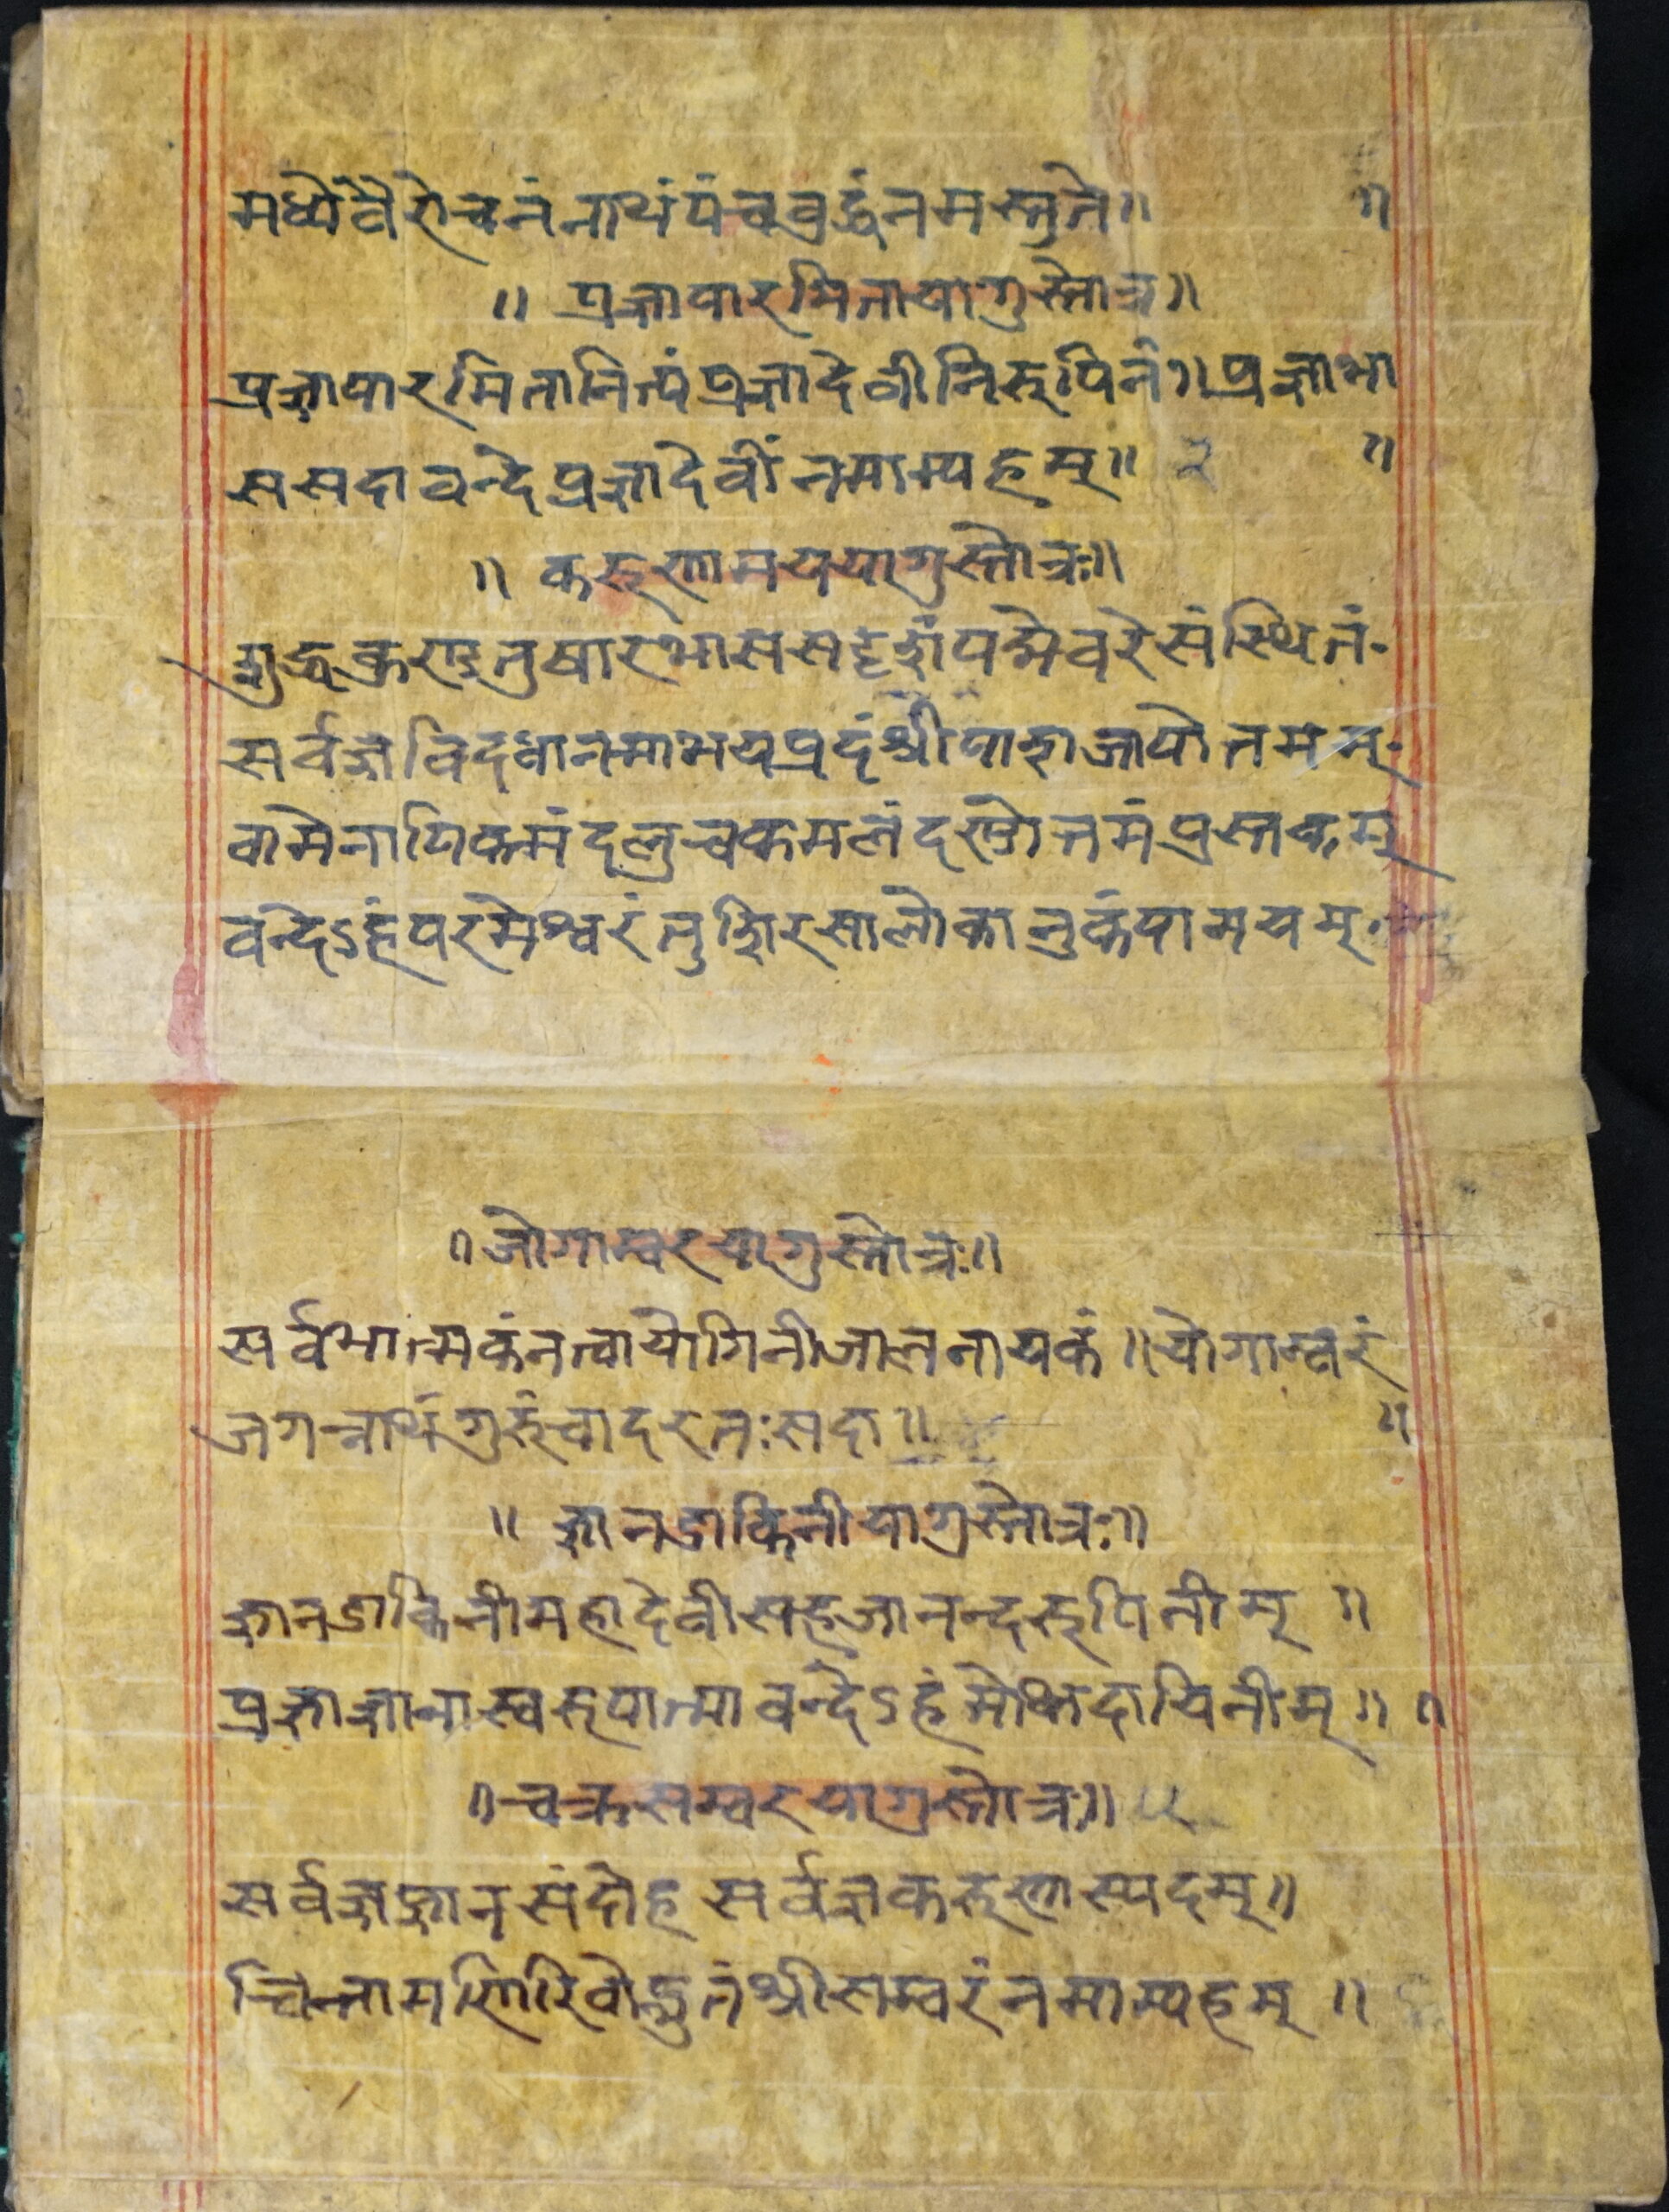 मध्ये वैरोचनं नाथं पंचवुद्धं नमस्तुते॥ ॥
॥ प्रज्ञापारमितायागु स्तोत्र॥
प्रज्ञापारमितानित्यं प्रज्ञादेवी निरूपिनं॥ प्रज्ञाभा
स सदा वन्दे प्रज्ञादेवीं नमाम्यहम्॥ २ ॥
॥ करूणामययागु स्तोत्रः॥
शुद्ध तुषारभाससदृशं पद्मेवरे संस्थितं.
सर्वज्ञ विदधानमाभयप्रदं श्री
वामेनापि कमंदलुच कमलं दण्डोत्तमं प्रस्तकम्
वन्देऽहं परमेश्वरं तु शिरसा लोकानुकंपामयम्.
॥ जोगाम्वरयागु स्तोत्रः॥
सर्वभात्मकं नत्वा योगिनीजालनायकं॥ योगाम्वरं
जगन्नाथं गुरूं चादरतः सदा॥ ॥
॥ ज्ञानडाकिनीयागु स्तोत्रः॥
ज्ञानडाकिनी महादेवी सहजानन्दरूपिनीम् ॥
प्रज्ञाज्ञानास्वरूपात्मा वन्देऽहं मोक्षदायिनीम्॥ ॥
॥ चक्रसम्वरयागु स्तोत्रः॥ ५
सर्वज्ञज्ञान संदोह सर्वज्ञकरूणास्पदम्॥
चिन्तामणिरिवोद्भुतं श्रीसम्वरं नमाम्यहम् ॥